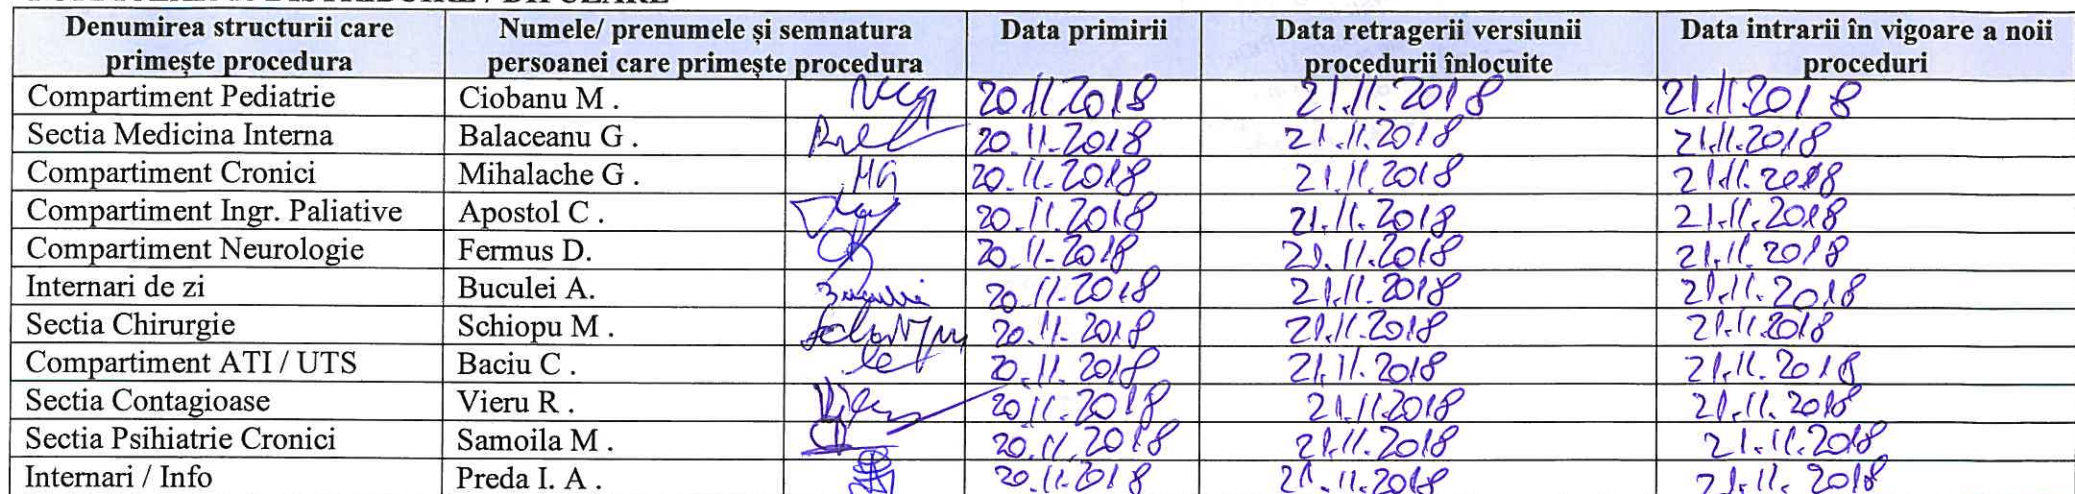 Denumirea structurii care primește procedura Numele/ prenumele și semnatura persoanei care primește procedura Data primirii Data retragerii versiunii procedurii înlocuite Data intrarii în vigoare a noii proceduri
Compartiment Pediatrie Ciobanu M . 20.11.2018 21.11.2018 21.11.2018
Sectia Medicina Interna Balaceanu G . 20.11.2018 21.11.2018 21.11.2018
Compartiment Cronici Mihalache G . MG 20.11.2018 21.11.2018 21.11.2018
Compartiment Ingr. Paliative Apostol C . 20.11.2018 21.11.2018 21.11.2018
Compartiment Neurologie Fermus D. 20.11.2018 21.11.2018 21.11.2018
Internari de zi Buculei A. 20.11.2018 21.11.2018 21.11.2018
Sectia Chirurgie Schiopu M . 20.11.2018 21.11.2018 21.11.2018
Compartiment ATI / UTS Baciu C . 20.11.2018 21.11.2018 21.11.2018
Sectia Contagioase Vieru R . 20.11.2018 21.11.2018 21.11.2018
Sectia Psihiatrie Cronici Samoila M . 20.11.2018 21.11.2018 21.11.2018
Internari / Info Preda I. A . 20.11.2018 21.11.2018 21.11.2018